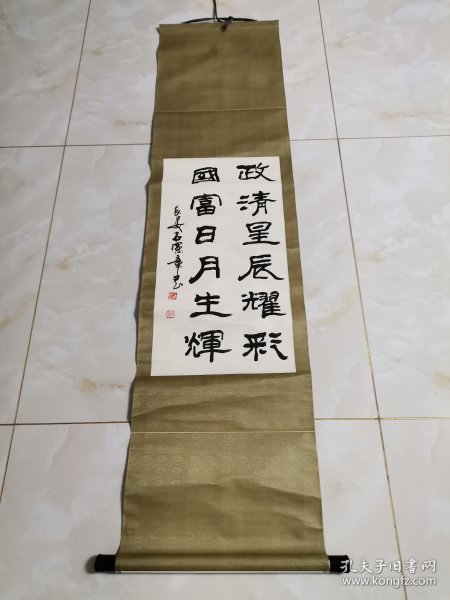 政清星辰耀彩
國富日月生輝
長安石憲章書
孔夫子旧书网
www.kongfz.com